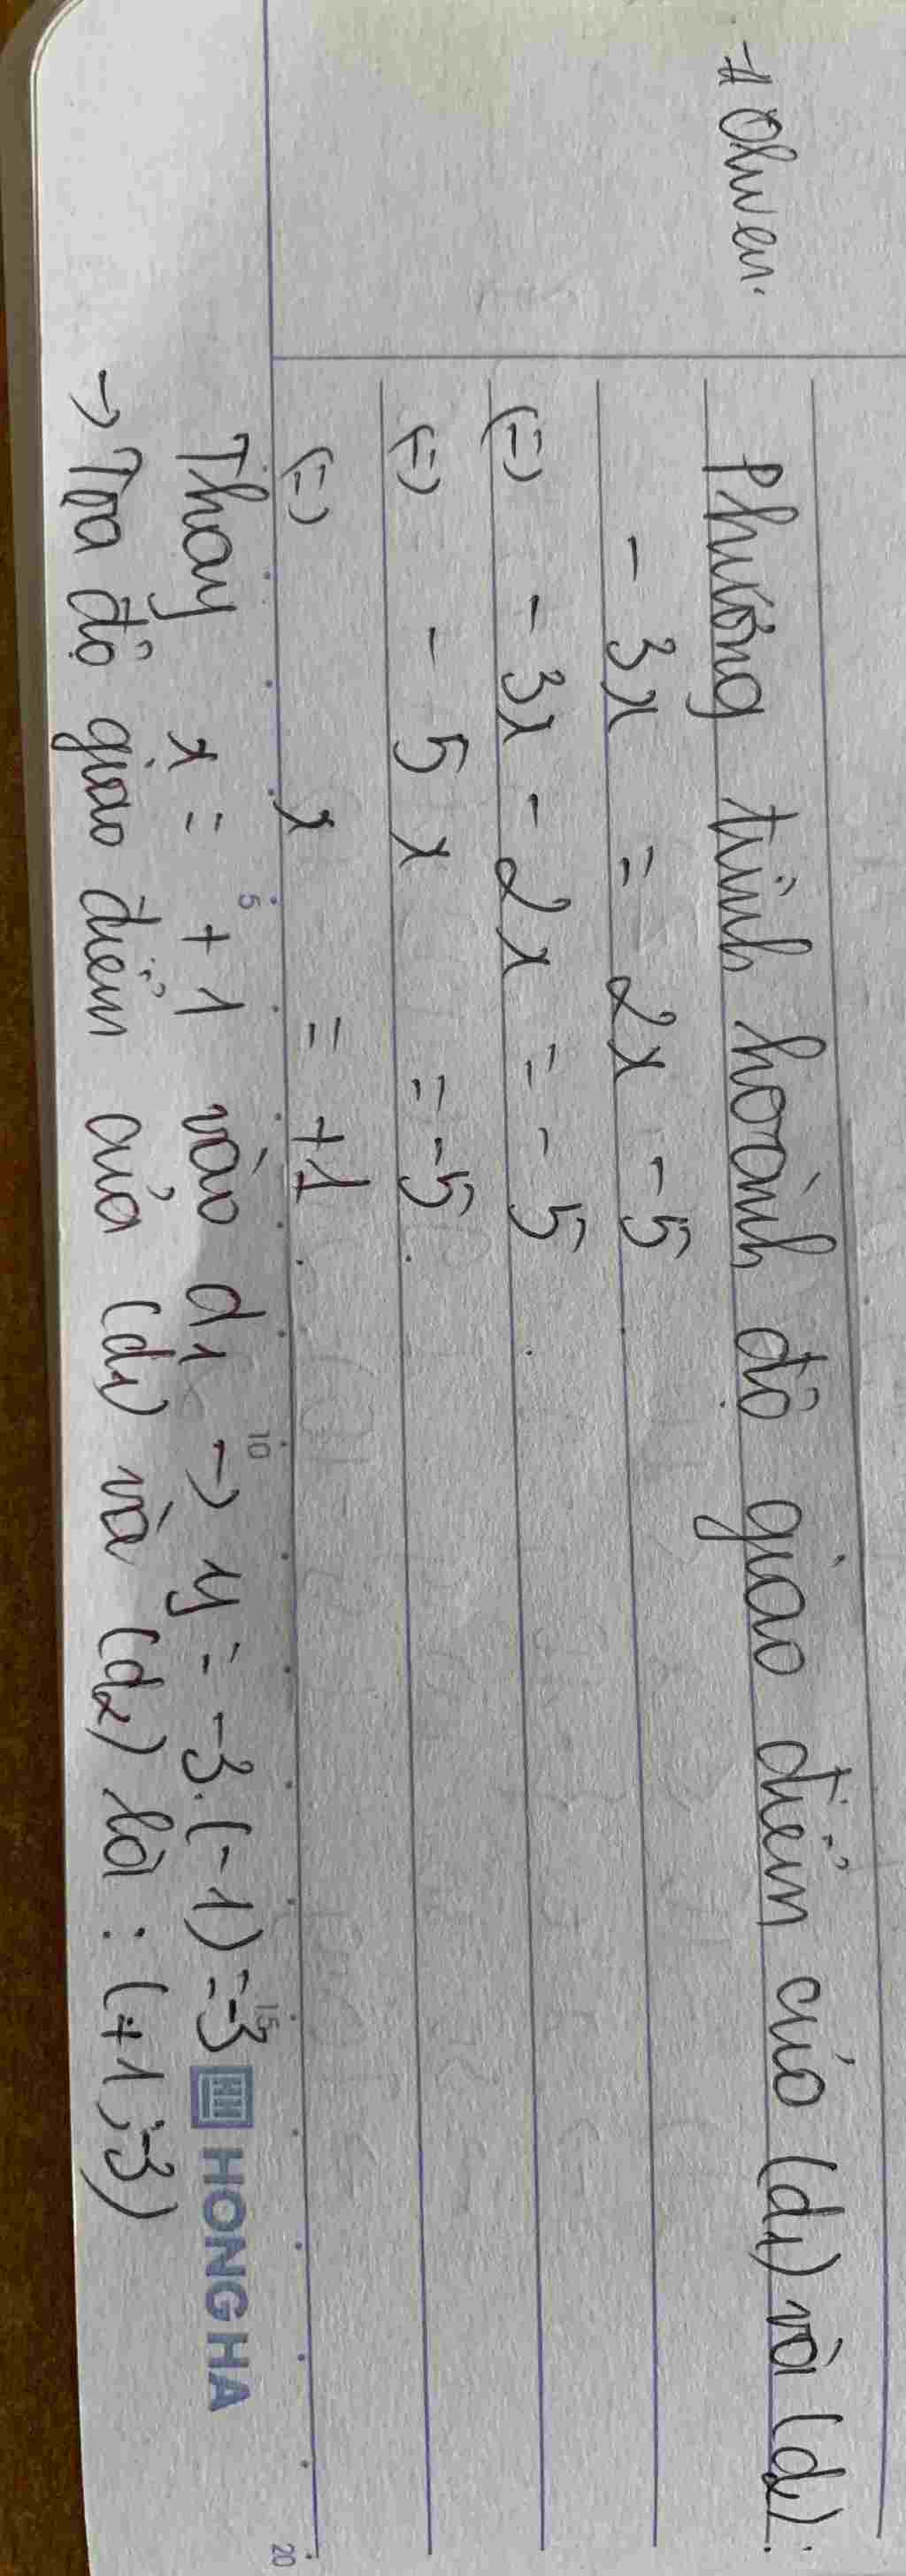 Phương trình hoành độ giao điểm của (d1) và (d2):
- 3x = 2x - 5
(=) - 3x - 2x = - 5
(=) - 5x = -5
(=) x = +1
Thay x = +1 vào d1 → y = -3.(-1) = -3
HONG HA
→ Tọa độ giao điểm của (d1) và (d2) là : (+1;-3)
5 10 15 20